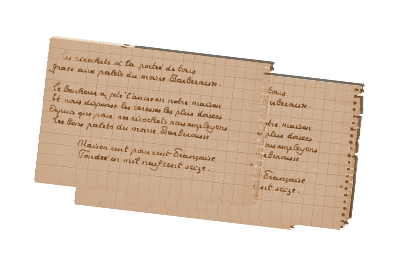 Les ricochets à la portée de tous
grâce aux palets du maire Barberousse.
Le Bonheur a jeté l'ancre en notre maison
Et nous dispense les caresses les plus douces
Depuis que pour nos ricochets nous employons
Les bons palets du maire Barberousse
Maison cent pour cent Française
Fondée en mil neuf cent seize.
tous
rberousse.
otre maison
plus douces
ous employons
rberousse
Française
nt seize.